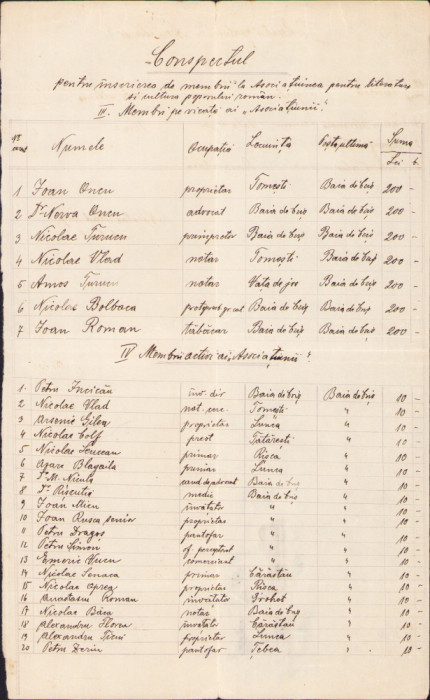 Conspectul
pentru înscrierea de membri la Asociațiunea pentru literatura
și cultura poporului român.
III. Membri pe vieață ai „Asociațiunii”.
Numele Ocupația Locuința Poșta ultimă Suma
Lei b.
1 Ioan Oncu proprietar Tomești Baia de Criș 200 -
2 Dr Nerva Oncu advocat Baia de Criș Baia de Criș 200 -
3 Nicolae Baia de Criș Baia de Criș 200 -
4 Nicolae Vlad notar Tomești Baia de Criș 200 -
5 Amos notar Vața de jos Baia de Criș 200 -
6 Nicolae Bolboca Baia de Criș Baia de Criș 200 -
7 Ioan Roman tăbăcar Baia de Criș Baia de Criș 200 -
IV Membrii activi ai „Asociațiunii”.
1 Petru înv. dir Baia de Criș Baia de Criș 10 -
2 Nicolae Vlad Tomești " 10 -
3 Arsenie proprietar Lunca " 10 -
4 Nicolae preot Tătărești " 10 -
5 Nicolae primar Rișca " 10 -
6 primar Lunca " 10 -
7 Dr M. cand. de advocat Baia de Criș " 10 -
8 Dr medic Baia de Criș " 10 -
9 Ioan Micu învățător " " 10 -
10 Ioan Rusca senior proprietar " " 10 -
11 Petru Dragoș pantofar " " 10 -
12 Petru Simon " " 10 -
13 Emeric comerciant " " 10 -
14 Nicolae primar Cărăstău " 10 -
15 Nicolae Oprea proprietar Rișca " 10 -
16 Anastasiu Roman învățător Grohot " 10 -
17 Nicolae Bâea notar Baia de Criș " 10 -
18 Alexandru Florea învățător Cărăstău " 10 -
19 Alexandru proprietar Lunca " 10 -
20 Petru pantofar Țebea " 10 -